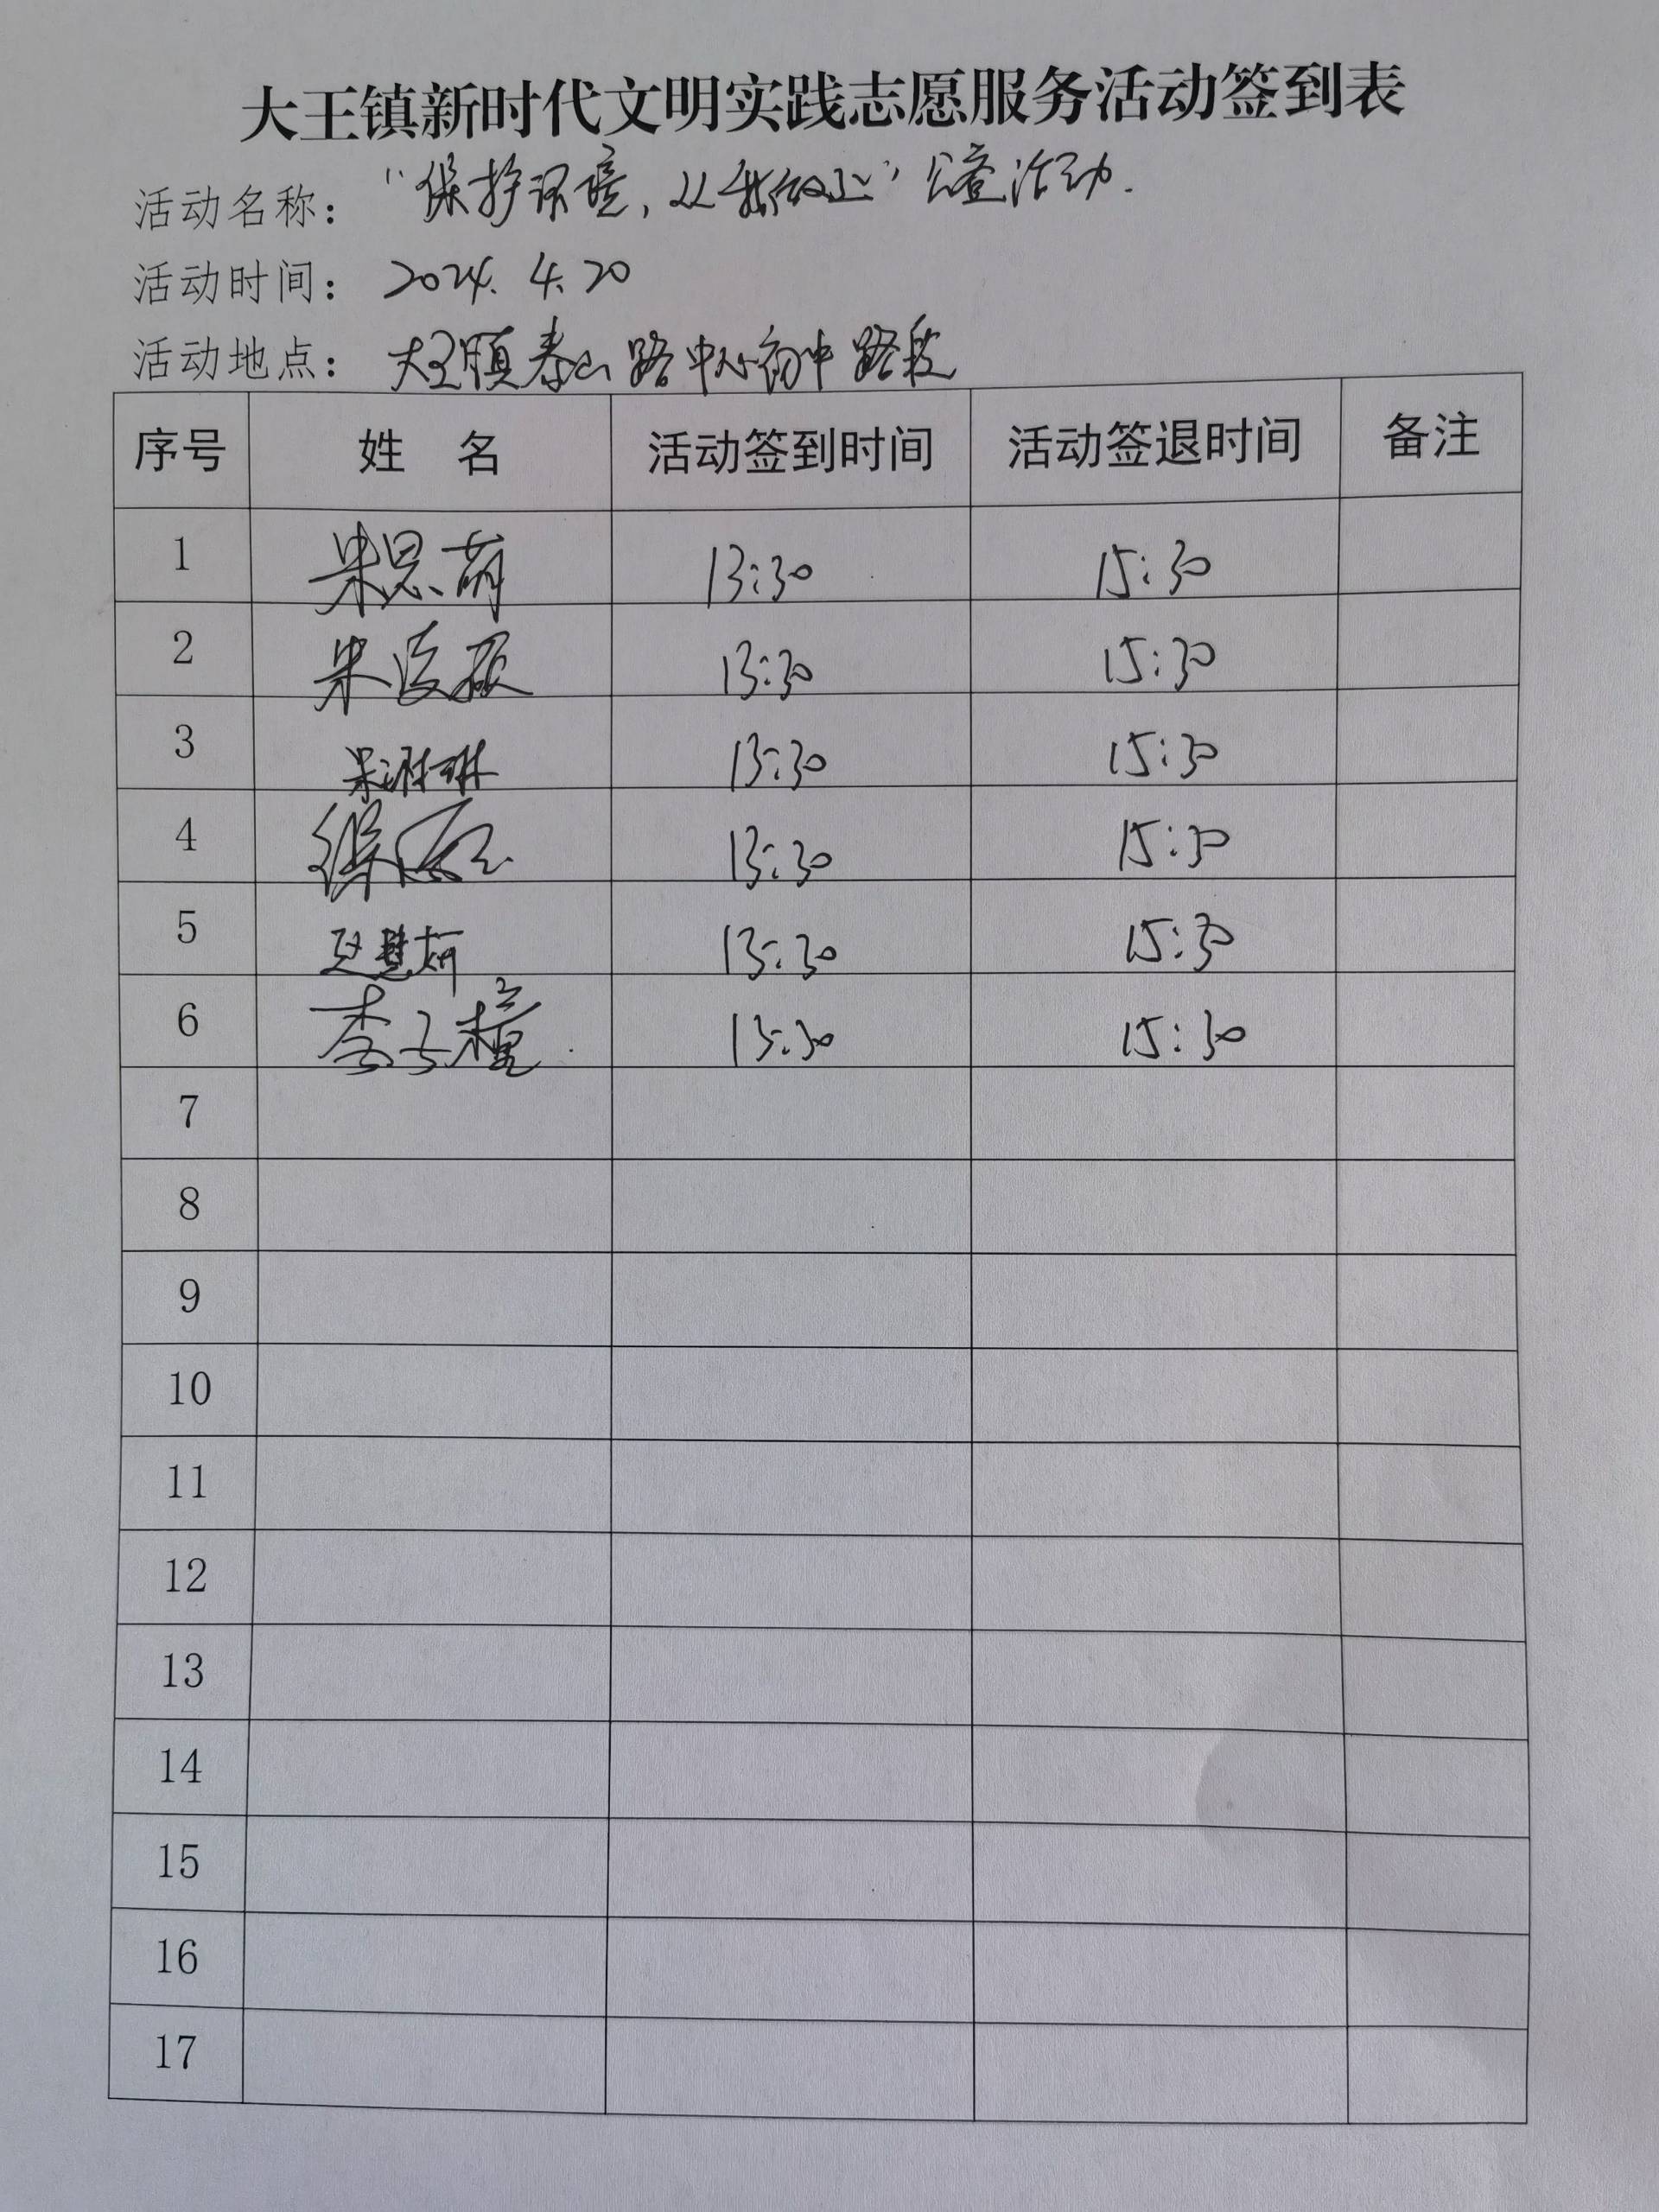 大王镇新时代文明实践志愿服务活动签到表
活动名称： “保护环境，从我做起”公益活动.
活动时间： 2024. 4. 20
活动地点： 大王镇泰山路中心初中路段
序号 姓 名 活动签到时间 活动签退时间 备注
1 思萌 13:30 15:30
2 13:30 15:30
3 琳 13:30 15:30
4 13:30 15:30
5 13:30 15:30
6 李子橦 13:30 15:30
7
8
9
10
11
12
13
14
15
16
17